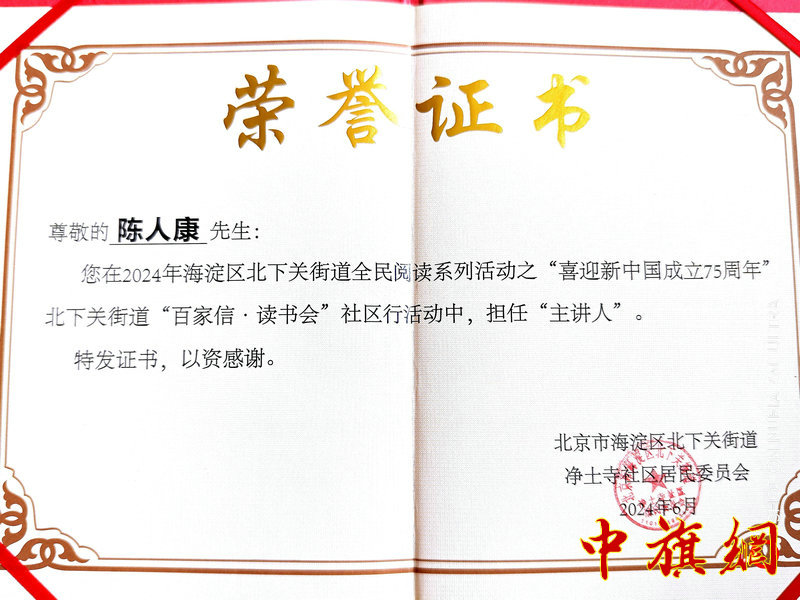 荣誉证书
尊敬的 陈人康 先生：
您在2024年海淀区北下关街道全民阅读系列活动之“喜迎新中国成立75周年”
北下关街道“百家信·读书会”社区行活动中，担任“主讲人”。
特发证书，以资感谢。
北京市海淀区北下关街道
净土寺社区居民委员会
2024年6月
中旗網